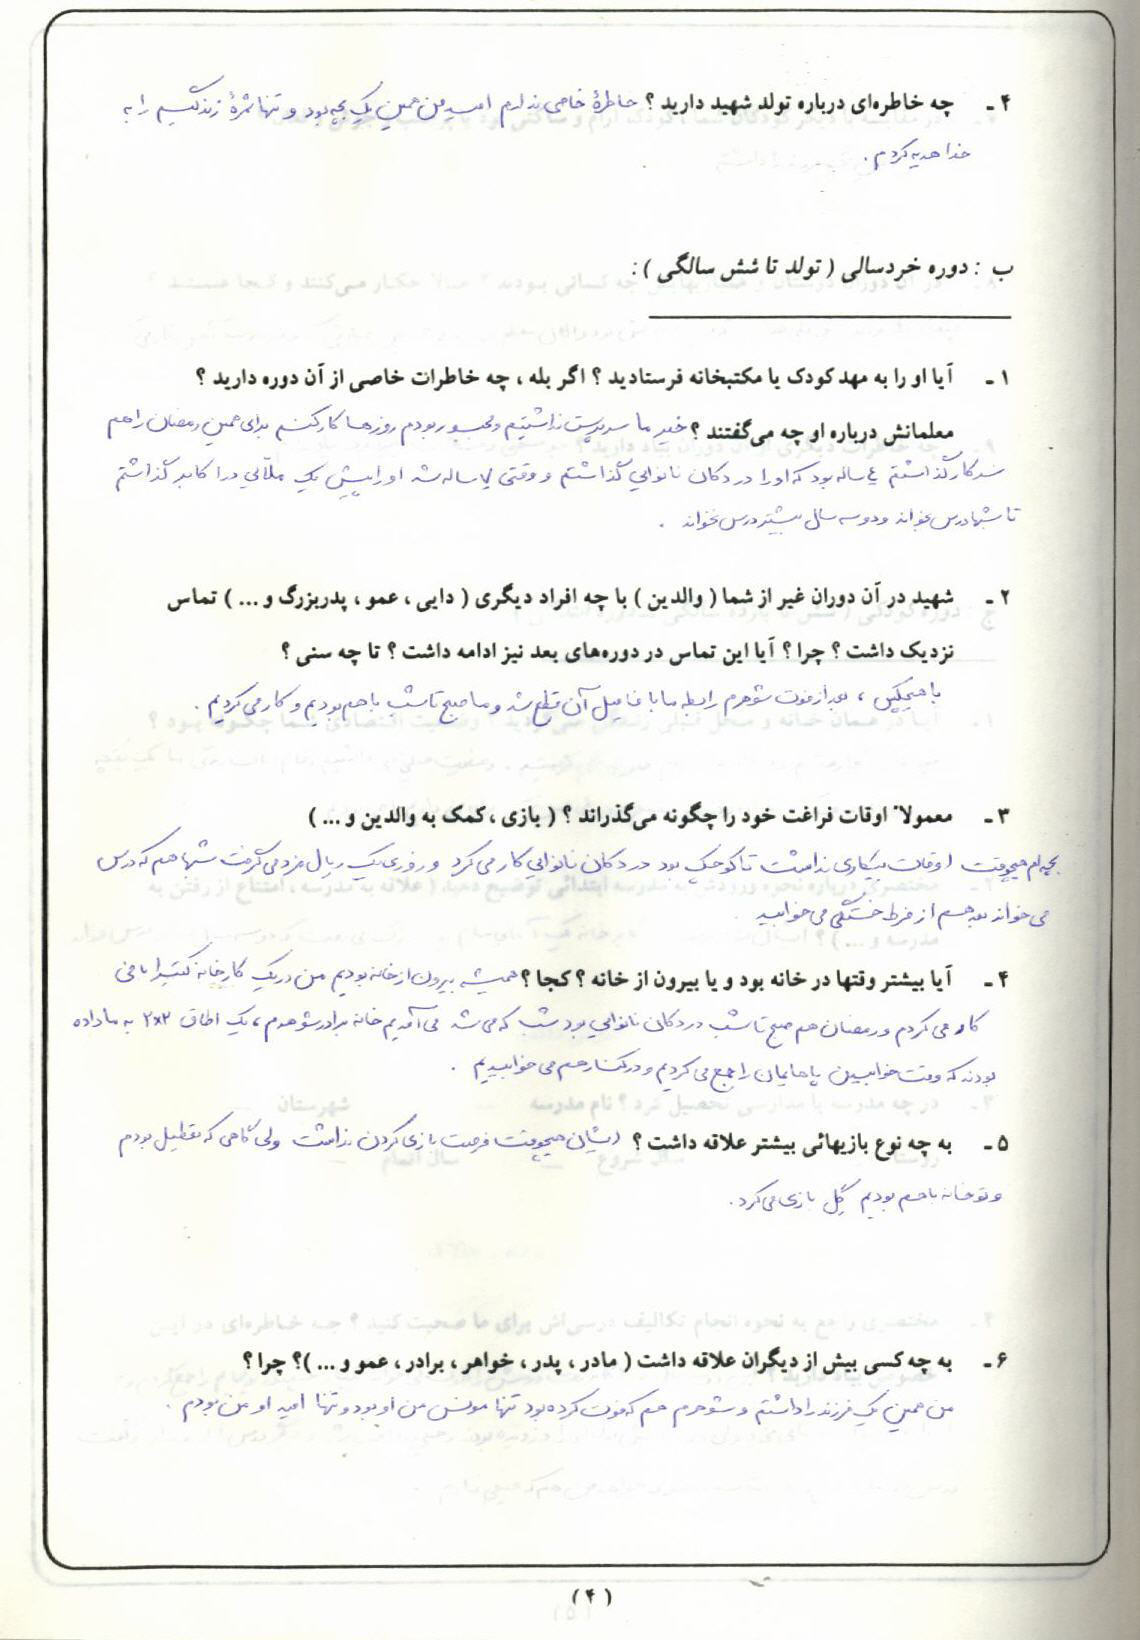 ۴ ـ چه خاطره‌ای درباره تولد شهید دارید ؟ خاطرهٔ خاصی ندارم امید من همین یک بچه بود و تنها ثمرهٔ زندگیم را به
خدا هدیه کردم .
ب : دوره خردسالی ( تولد تا شش سالگی ) :
۱ ـ آیا او را به مهد کودک یا مکتبخانه فرستادید ؟ اگر بله ، چه خاطرات خاصی از آن دوره دارید ؟
معلمانش درباره او چه می‌گفتند ؟ خیر ما سرپرست نداشتیم و مجبور بودم روزها کار کنم برای همین رمضان را هم
سر کار گذاشتم ۴ ساله بود که او را در دکان نانوایی گذاشتم و وقتی ۷ ساله شد او را پیش یک ملائی در اکابر گذاشتم
تا شبها درس بخواند و دو سه سال بیشتر درس نخواند .
۲ ـ شهید در آن دوران غیر از شما ( والدین ) با چه افراد دیگری ( دایی ، عمو ، پدربزرگ و ... ) تماس
نزدیک داشت ؟ چرا ؟ آیا این تماس در دوره‌های بعد نیز ادامه داشت ؟ تا چه سنی ؟
با هیچکس ، بعد از فوت شوهرم رابطه ما با فامیل آن قطع شد و ما صبح تا شب با هم بودیم و کار می کردیم .
۳ ـ معمولاً اوقات فراغت خود را چگونه می‌گذراند ؟ ( بازی ، کمک به والدین و ... )
بچه‌ام هیچوقت اوقات بیکاری نداشت تا کوچک بود در دکان نانوایی کار می کرد و روزی یک ریال مزد می گرفت شبها هم که درس
می خواند بعد هم از فرط خستگی می خوابید .
۴ ـ آیا بیشتر وقتها در خانه بود و یا بیرون از خانه ؟ کجا ؟ همیشه بیرون از خانه بودیم من در یک کارخانه کتیرا بافی
کار می کردم و رمضان هم صبح تا شب در دکان نانوایی بود شب که می شد می آمدیم خانه برادر شوهرم ، یک اطاق ۲×۲ به ما داده
بودند که وقت خوابیدن پاهایمان را جمع می کردیم و در کنار هم می خوابیدیم .
۵ ـ به چه نوع بازیهائی بیشتر علاقه داشت ؟ ایشان هیچوقت فرصت بازی کردن نداشت ولی گاهی که تعطیل بودم
و تو خانه با هم بودیم گِل بازی می کرد .
۶ ـ به چه کسی بیش از دیگران علاقه داشت ( مادر ، پدر ، خواهر ، برادر ، عمو و ... )؟ چرا ؟
من همین یک فرزند را داشتم و شوهرم هم که فوت کرده بود تنها مونس من او بود و تنها امید او من بودم .
( ۴ )